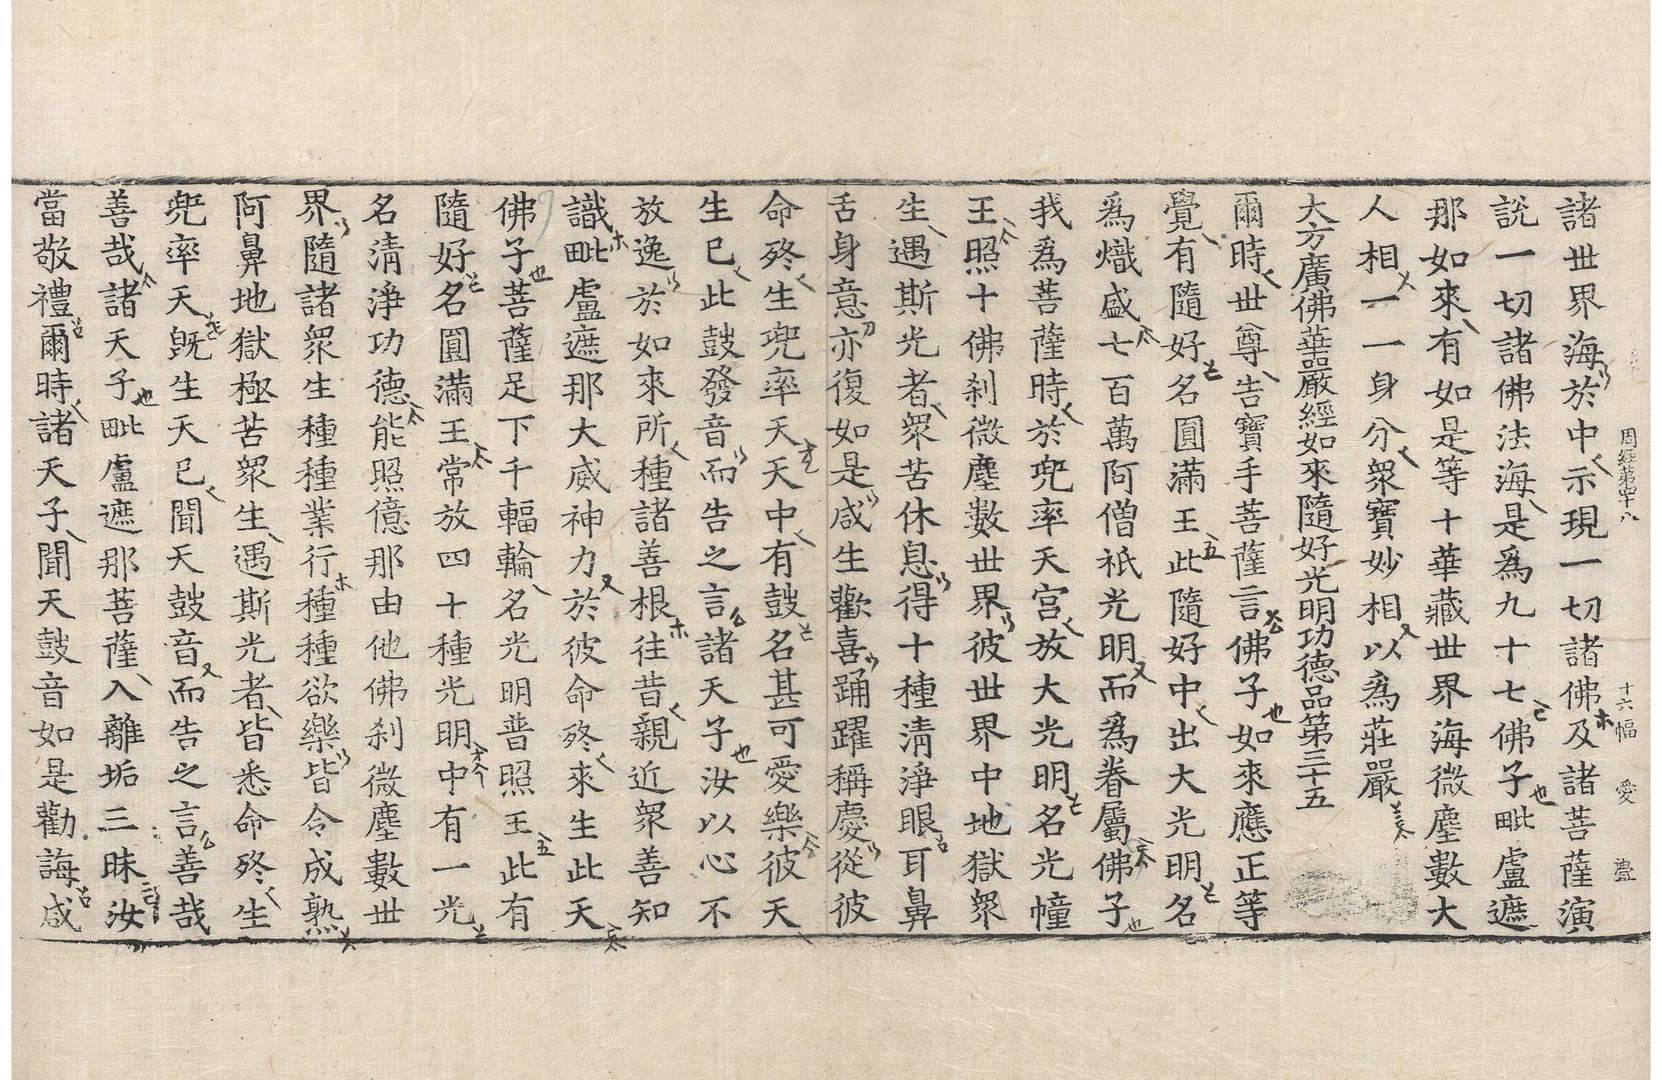 周經第四十八 十六幅 愛 璺
諸世界海於中示現一切諸佛及諸菩薩演
說一切諸佛法海是爲九十七佛子毗盧遮
那如來有如是等十華藏世界海微塵數大
人相一一身分衆寶妙相以爲莊嚴
大方廣佛華嚴經如來隨好光明功德品第三十五
爾時世尊告寶手菩薩言佛子如來應正等
覺有隨好名圓滿王此隨好中出大光明名
爲熾盛七百萬阿僧祇光明而爲眷屬佛子
我爲菩薩時於兜率天宮放大光明名光幢
王照十佛刹微塵數世界彼世界中地獄衆
生遇斯光者衆苦休息得十種清淨眼耳鼻
舌身意亦復如是咸生歡喜踊躍稱慶從彼
命終生兜率天天中有鼓名甚可愛樂彼天
生已此鼓發音而告之言諸天子汝以心不
放逸於如來所種諸善根往昔親近衆善知
識毗盧遮那大威神力於彼命終來生此天
佛子菩薩足下千輻輪名光明普照王此有
隨好名圓滿王常放四十種光明中有一光
名清淨功德能照億那由他佛刹微塵數世
界隨諸衆生種種業行種種欲樂皆令成熟
阿鼻地獄極苦衆生遇斯光者皆悉命終生
兜率天既生天已聞天鼓音而告之言善哉
善哉諸天子毗盧遮那菩薩入離垢三昧汝
當敬禮爾時諸天子聞天鼓音如是勸誨咸